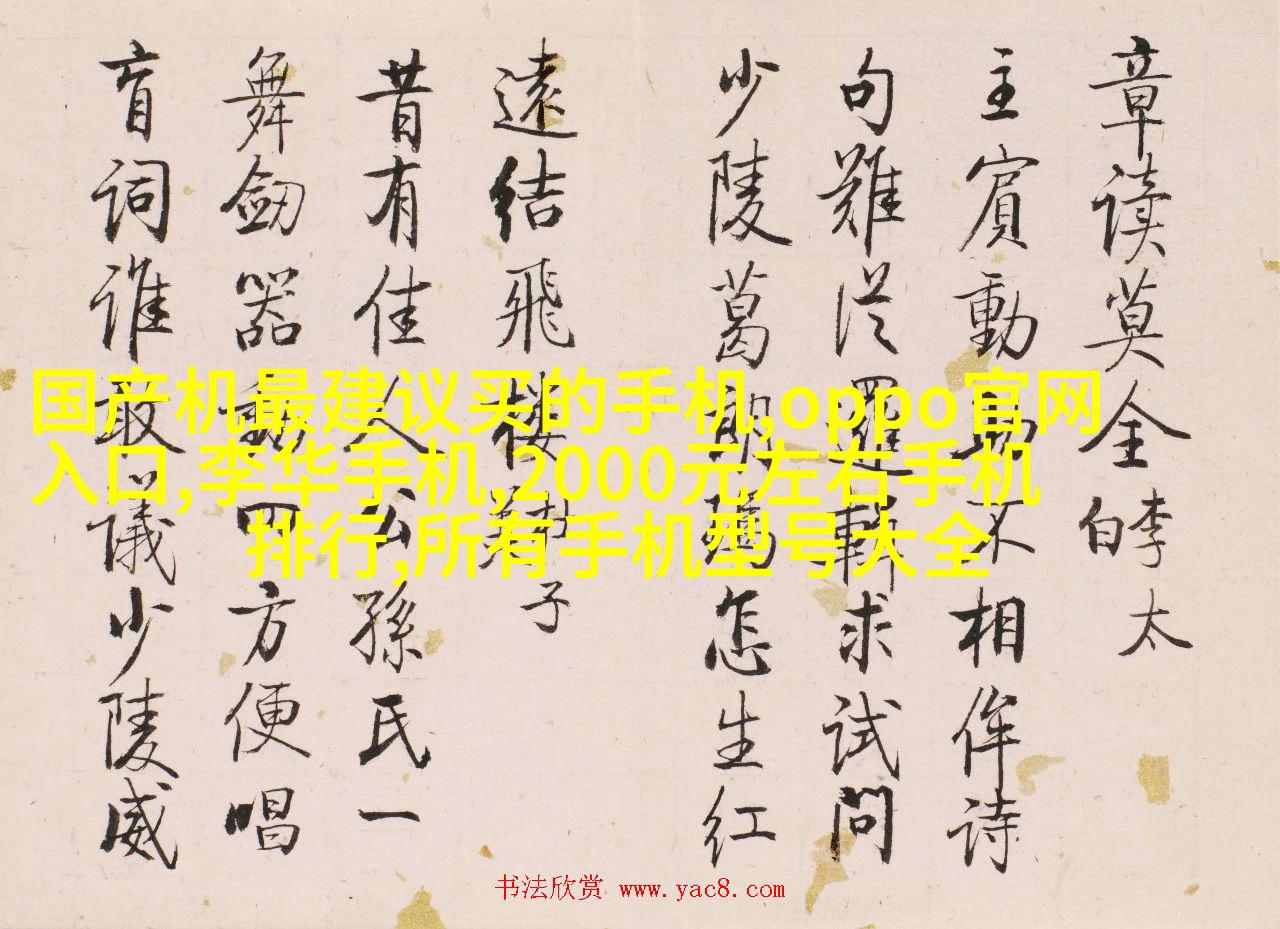 国产机最建议买的手机,oppo官网
入口,李华手机,2000元左右手机
排行,所有手机型号大全
章读莫全
李太
白
主賓動不相侔詩
句難從求試問
少陵葛怎生紅
遠結飛樓子
昔有佳人公孫氏一
舞劒器動四方便唱
盲詞誰敢議少陵威
书法欣赏 www.yac8.com